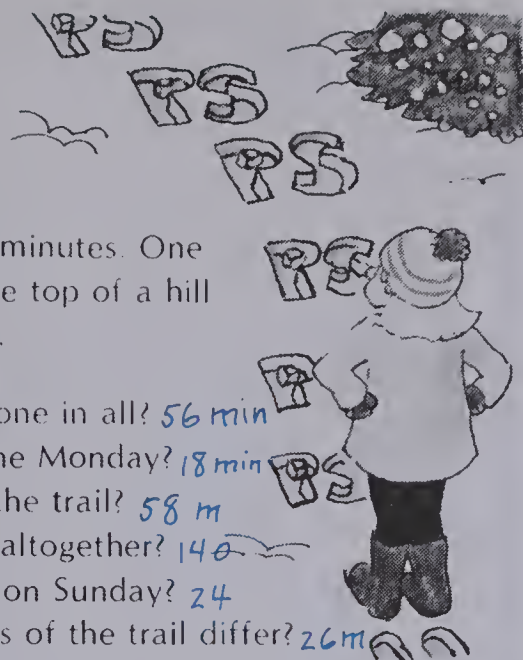 PS
PS
PS
minutes. One
e top of a hill
PS
one in all? 56 min
P
ne Monday? 18 min
PS
the trail? 58 m
altogether? 140
on Sunday? 24
s of the trail differ? 26 m